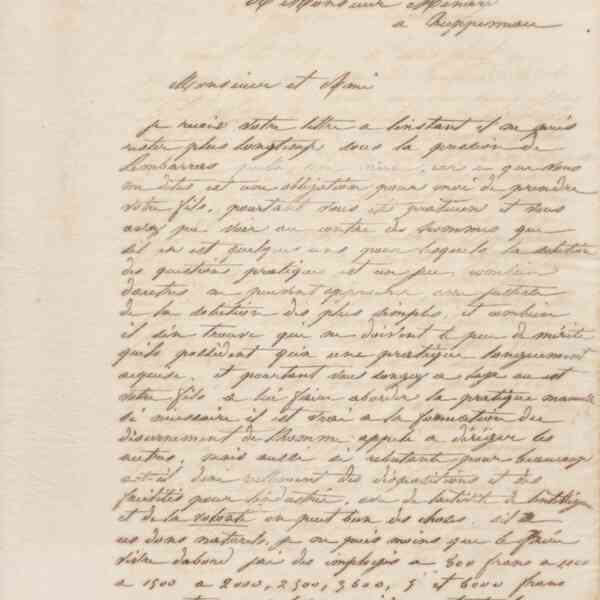 A Monsieur Menier
à Guppernau
Monsieur et Ami
je reçois votre lettre a l'instant il ne puis
rester plus longtemp sous la pression de
l'embarras , car ce que vous
me dites est une obligation pour moi de prendre
votre fils, pourtant vous êtes praticien et vous
avez pu voir au contre des hommes que
s'il en est quelques uns pour lesquels la solution
des questions pratiques est un peu combien
d'autres ne peuvent approcher avec justesse
de la solution des plus simples, et combien
il s'en trouve qui ne doivent le peu de mérite
qu'ils possèdent qu'a une pratique longuement
acquise, et pourtant vous songez a
votre fils a lui faire aborder la pratique manuelle
si necessaire il est vrai a la formation du
discernement de l'homme appelé a diriger les
autres, mais aussi si rebutant pour beaucoup
a-t-il donc réellement des dispositions et des
facilités pour l'industrie, car de l'activité de l'intelligence
et de la volonté on peut bien des choses. s'il a
ces dons naturels, je ne puis moins que le faire
d'abord j'ai des employés a 800 francs a 1000
a 1500 a 2000, 2500, 3600, 5 et 6000 francs